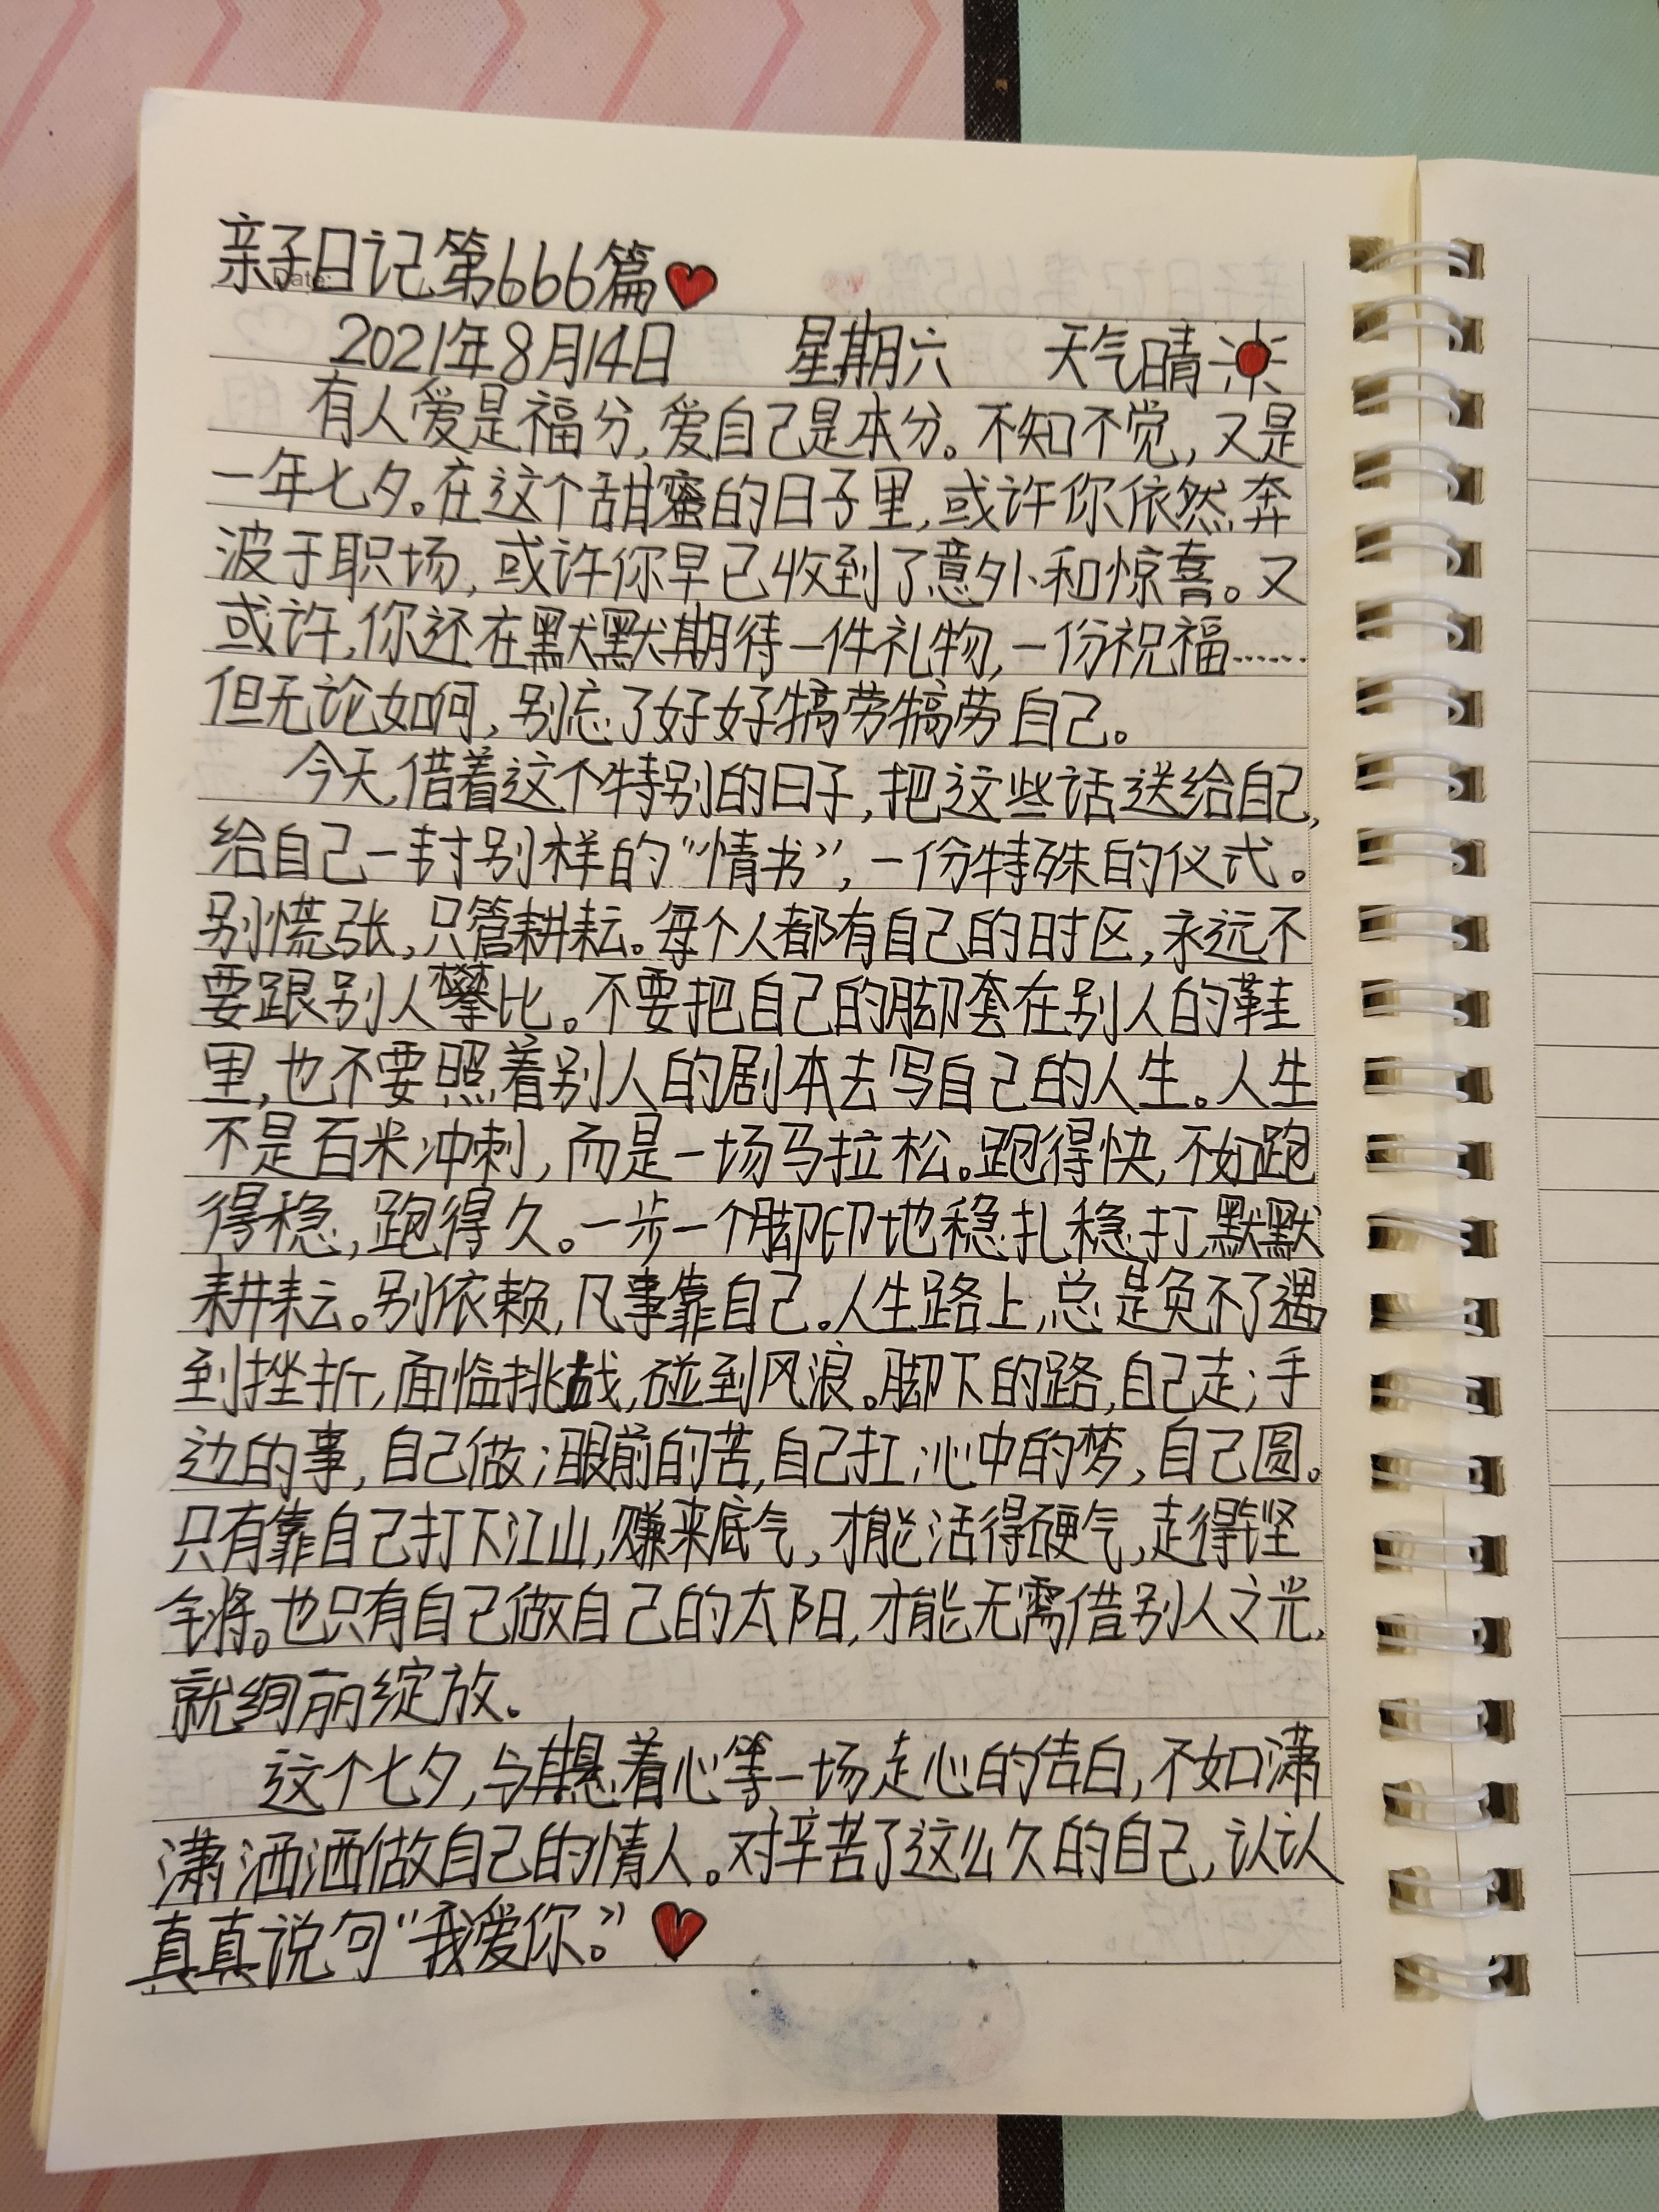 亲子日记第666篇
2021年8月14日 星期六 天气晴
有人爱是福分,爱自己是本分。不知不觉,又是
一年七夕。在这个甜蜜的日子里,或许你依然奔
波于职场,或许你早已收到了意外和惊喜。又
或许,你还在默默期待一件礼物,一份祝福……
但无论如何,别忘了好好犒劳犒劳自己。
今天,借着这个特别的日子,把这些话送给自己,
给自己一封别样的“情书”,一份特殊的仪式。
别慌张,只管耕耘。每个人都有自己的时区,永远不
要跟别人攀比。不要把自己的脚套在别人的鞋
里,也不要照着别人的剧本去写自己的人生。人生
不是百米冲刺,而是一场马拉松。跑得快,不如跑
得稳,跑得久。一步一个脚印地稳扎稳打,默默
耕耘。别依赖,凡事靠自己。人生路上,总是免不了遇
到挫折,面临挑战,碰到风浪。脚下的路,自己走;手
边的事,自己做;眼前的苦,自己扛;心中的梦,自己圆。
只有靠自己打下江山,赚来底气,才能活得硬气,走得铿
锵。也只有自己做自己的太阳,才能无需借别人之光,
就绚丽绽放。
这个七夕,与其悬着心等一场走心的告白,不如潇
潇洒洒做自己的情人。对辛苦了这么久的自己,认认
真真说句“我爱你。”